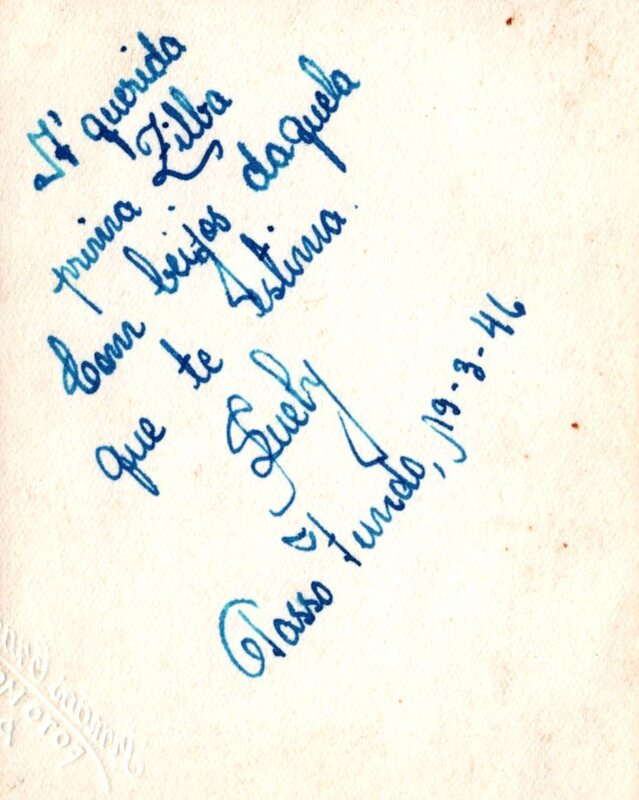 Á querida
prima Zilba
Com beijos daquela
que te estima.
Suely
Passo Fundo, 19-3-46
FOTO MO